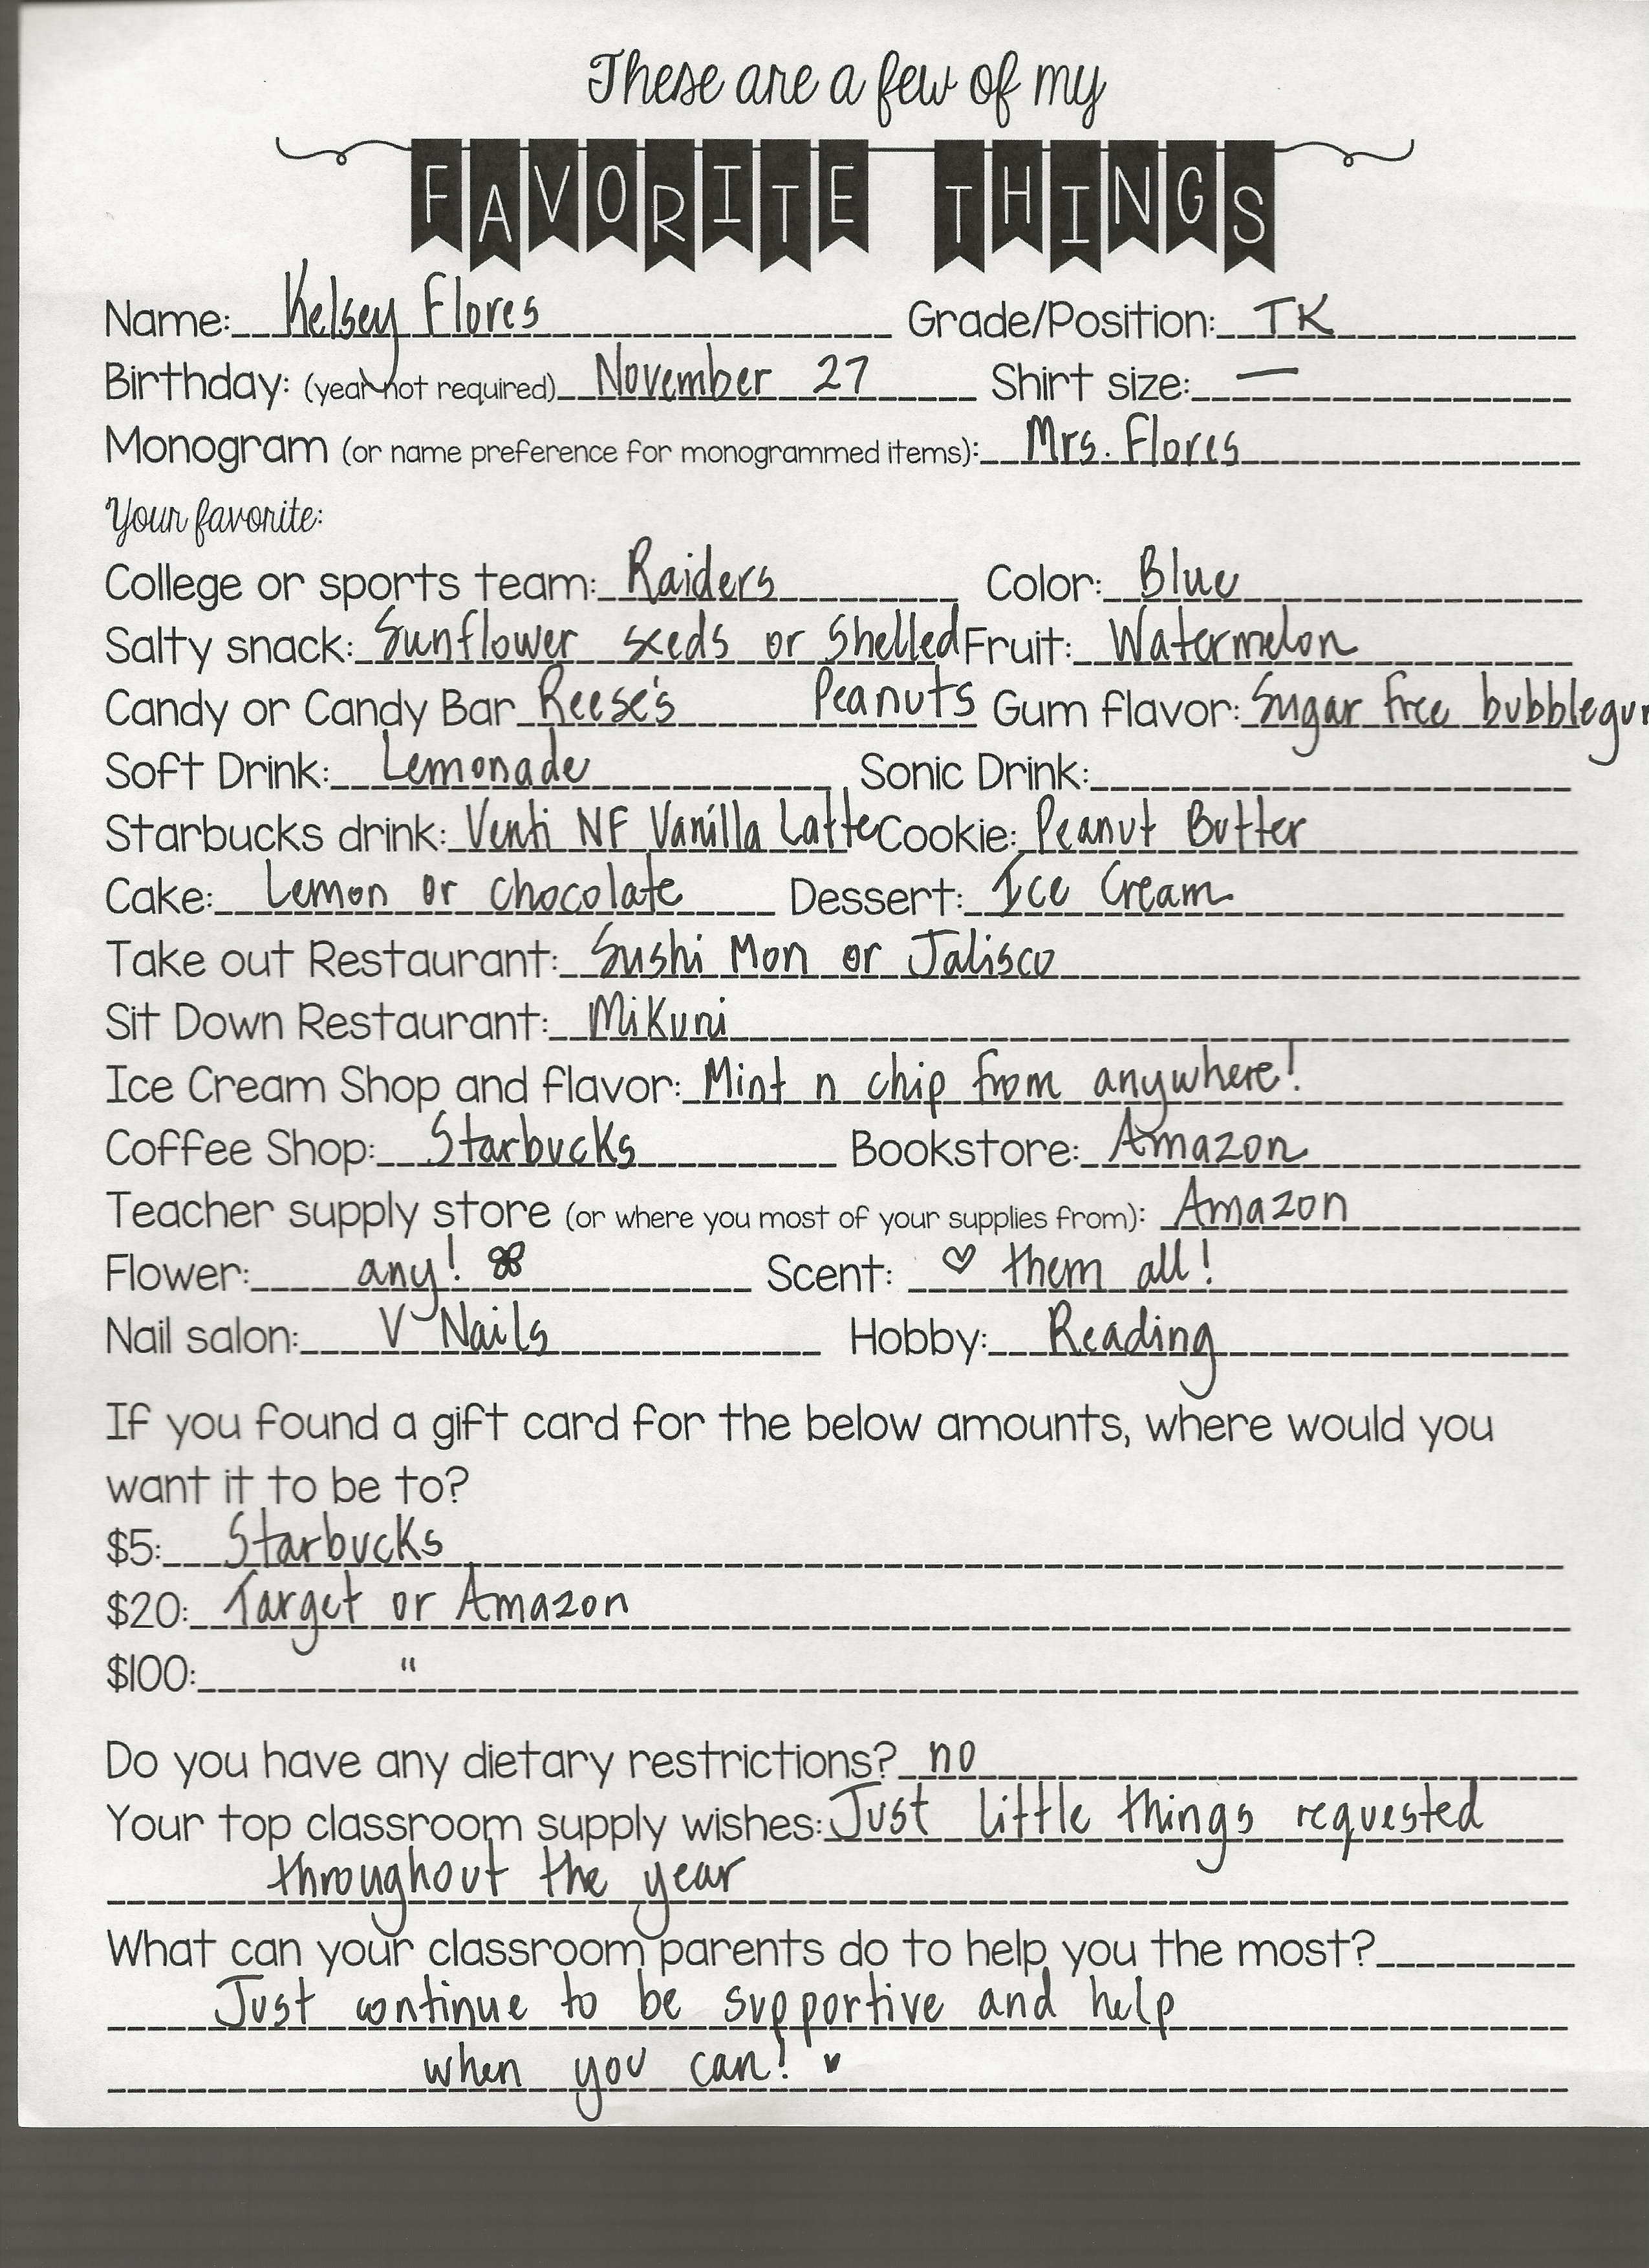 These are a few of my
FAVORITE THINGS
Name: Kelsey Flores Grade/Position: TK
Birthday: (year not required) November 27 Shirt size: —
Monogram (or name preference for monogrammed items): Mrs. Flores
Your favorite:
College or sports team: Raiders Color: Blue
Salty snack: Sunflower seeds or Shelled Fruit: Watermelon
Candy or Candy Bar Reese's Peanuts Gum flavor: Sugar free bubblegum
Soft Drink: Lemonade Sonic Drink:
Starbucks drink: Venti NF Vanilla Latte Cookie: Peanut Butter
Cake: Lemon or chocolate Dessert: Ice Cream
Take out Restaurant: Sushi Mon or Jalisco
Sit Down Restaurant: Mikuni
Ice Cream Shop and flavor: Mint n chip from anywhere!
Coffee Shop: Starbucks Bookstore: Amazon
Teacher supply store (or where you most of your supplies from): Amazon
Flower: any! Scent: ♡ them all!
Nail salon: V Nails Hobby: Reading
If you found a gift card for the below amounts, where would you
want it to be to?
$5: Starbucks
$20: Target or Amazon
$100: "
Do you have any dietary restrictions? no
Your top classroom supply wishes: Just little things requested
throughout the year
What can your classroom parents do to help you the most?
Just continue to be supportive and help
when you can! ♥